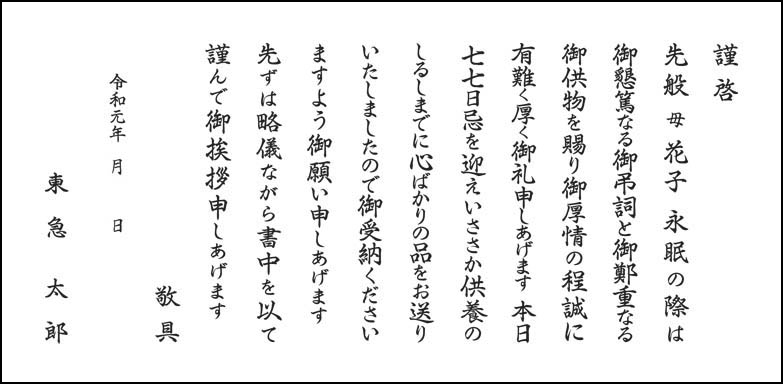 謹啓
先般 母 花子 永眠の際は
御懇篤なる御弔詞と御鄭重なる
御供物を賜り御厚情の程誠に
有難く厚く御礼申しあげます 本日
七七日忌を迎えいささか供養の
しるしまでに心ばかりの品をお送り
いたしましたので御受納ください
ますよう御願い申しあげます
先ずは略儀ながら書中を以て
謹んで御挨拶申しあげます
敬具
令和元年 月 日
東急 太郎